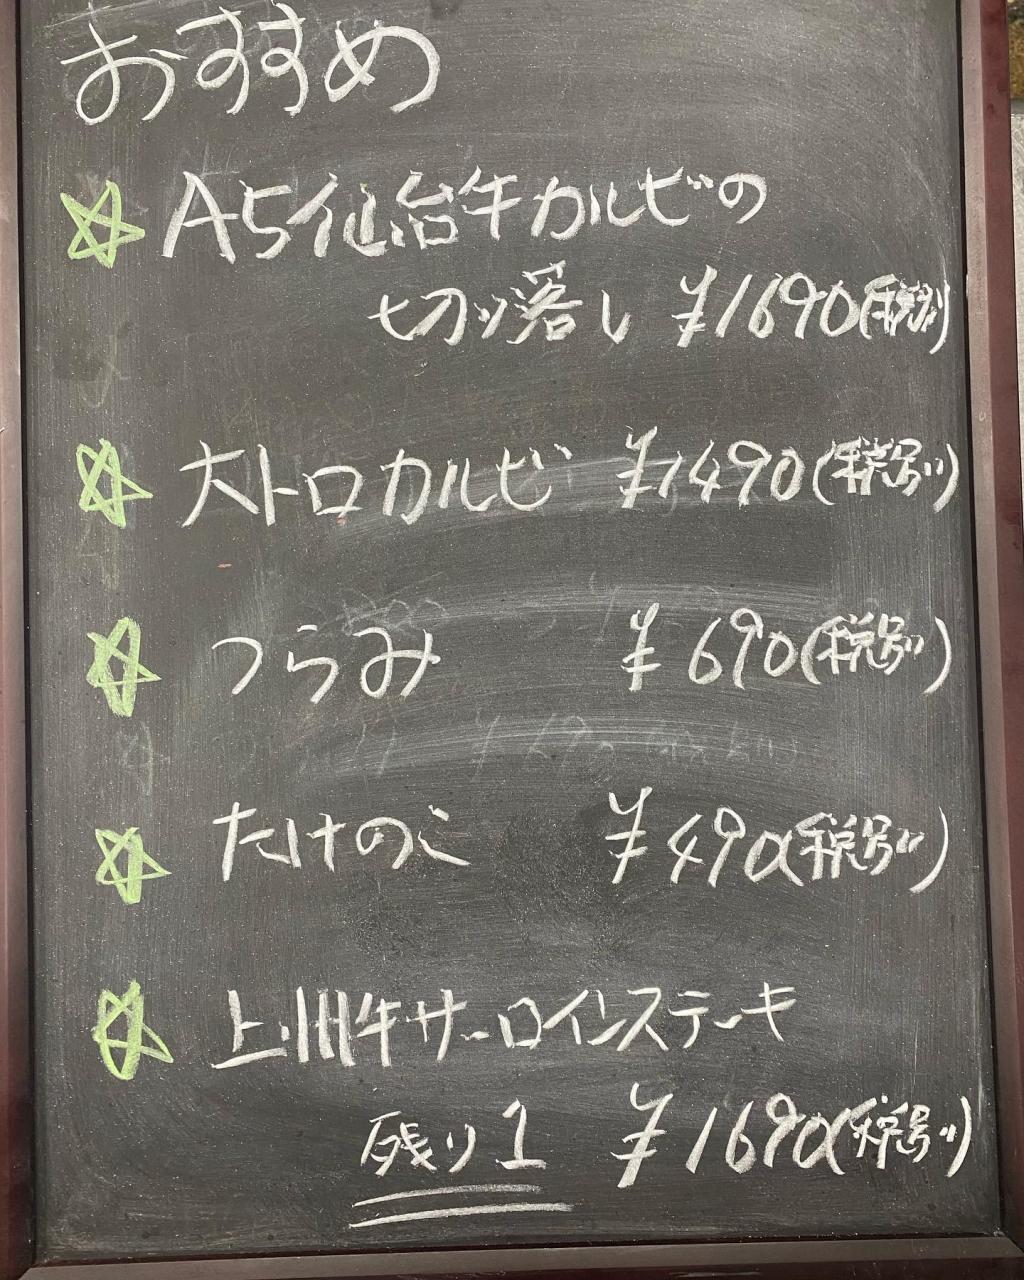 おすすめ
☆ A5仙台牛カルビの
切り落し ¥1690(税別)
☆ 大トロカルビ ¥1490(税別)
☆ つらみ ¥690(税別)
☆ たけのこ ¥490(税別)
☆ 上州牛サーロインステーキ
残り1 ¥1690(税別)